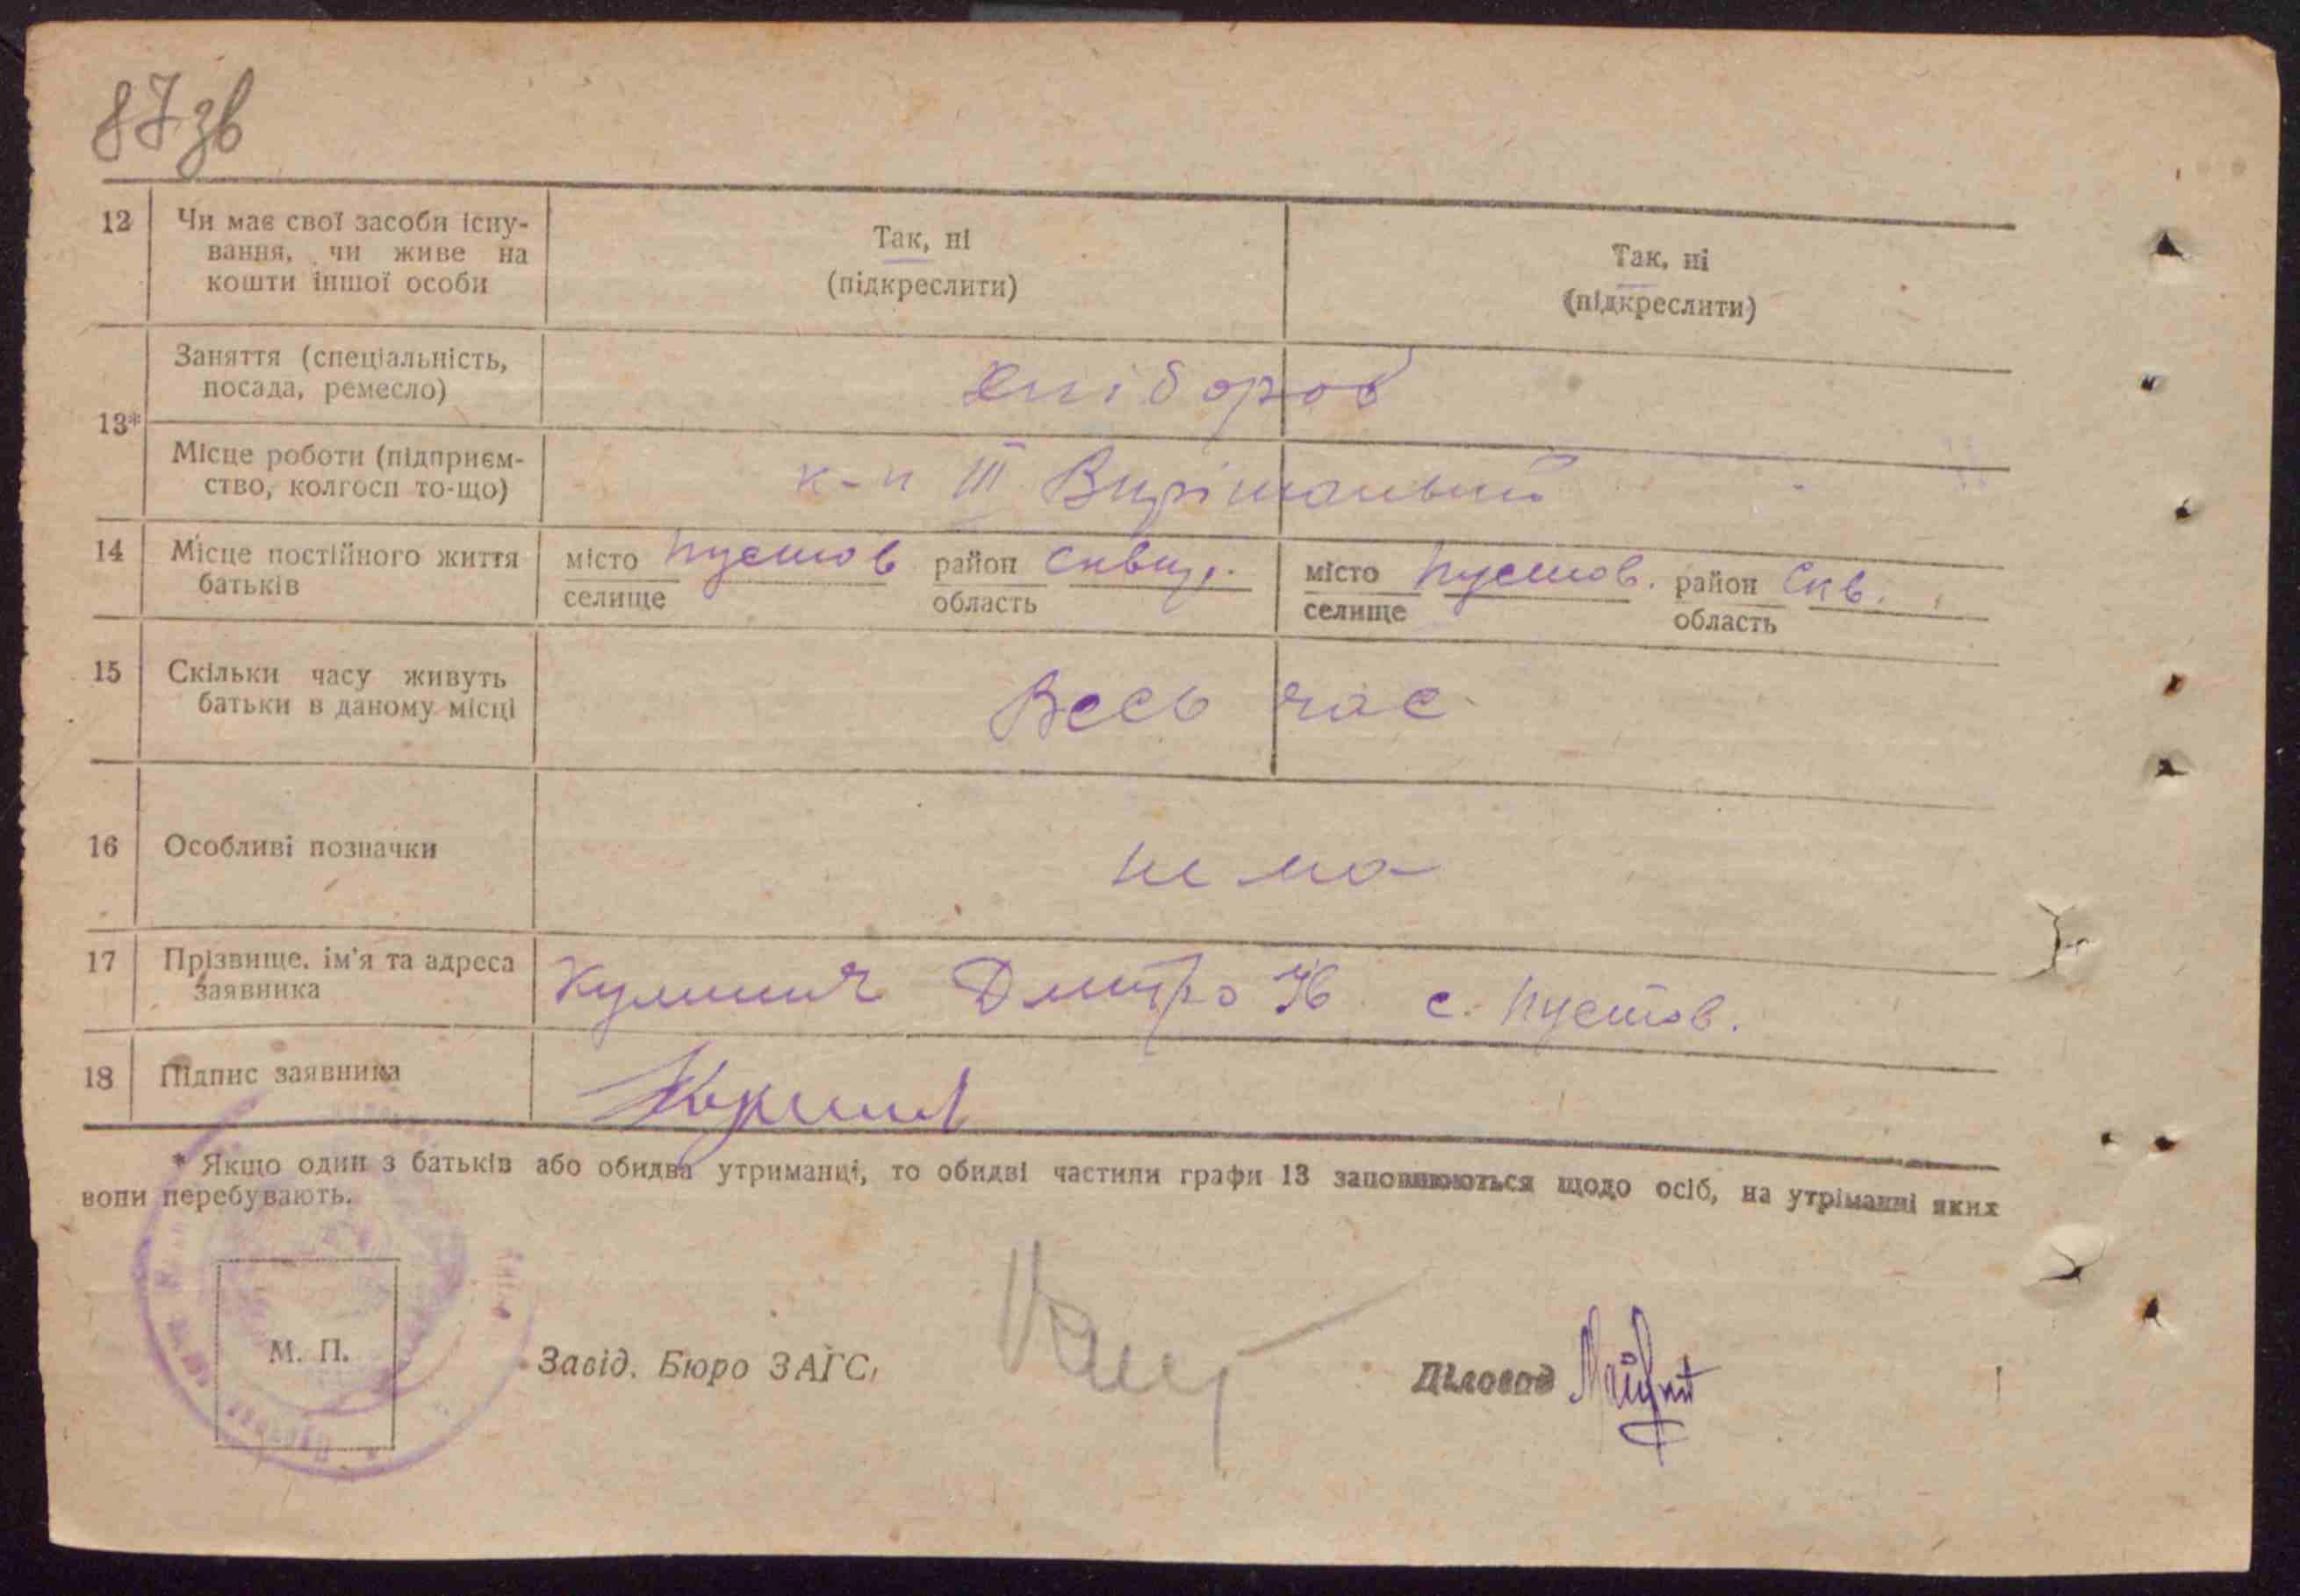 87 зв
12 Чи має свої засоби існу-
вання, чи живе на
кошти іншої особи
Так, ні
(підкреслити)
Так, ні
(підкреслити)
13*
Заняття (спеціальність,
посада, ремесло)
хлібороб
Місце роботи (підприєм-
ство, колгосп то-що)
к-п III Вирішальний
14 Місце постійного життя
батьків
місто Пустов район Сквир.
селище область
місто Пустов. район Скв.
селище область
15 Скільки часу живуть
батьки в даному місці
Весь час
16 Особливі позначки
нема
17 Прізвище, ім'я та адреса
заявника
Дмитро Ів с. Пустов.
18 Підпис заявника
* Якщо один з батьків або обидва утриманці, то обидві частини графи 13 заповнюються щодо осіб, на утріманні яких
вони перебувають.
М. П.
Завід. Бюро ЗАГС,
Діловод